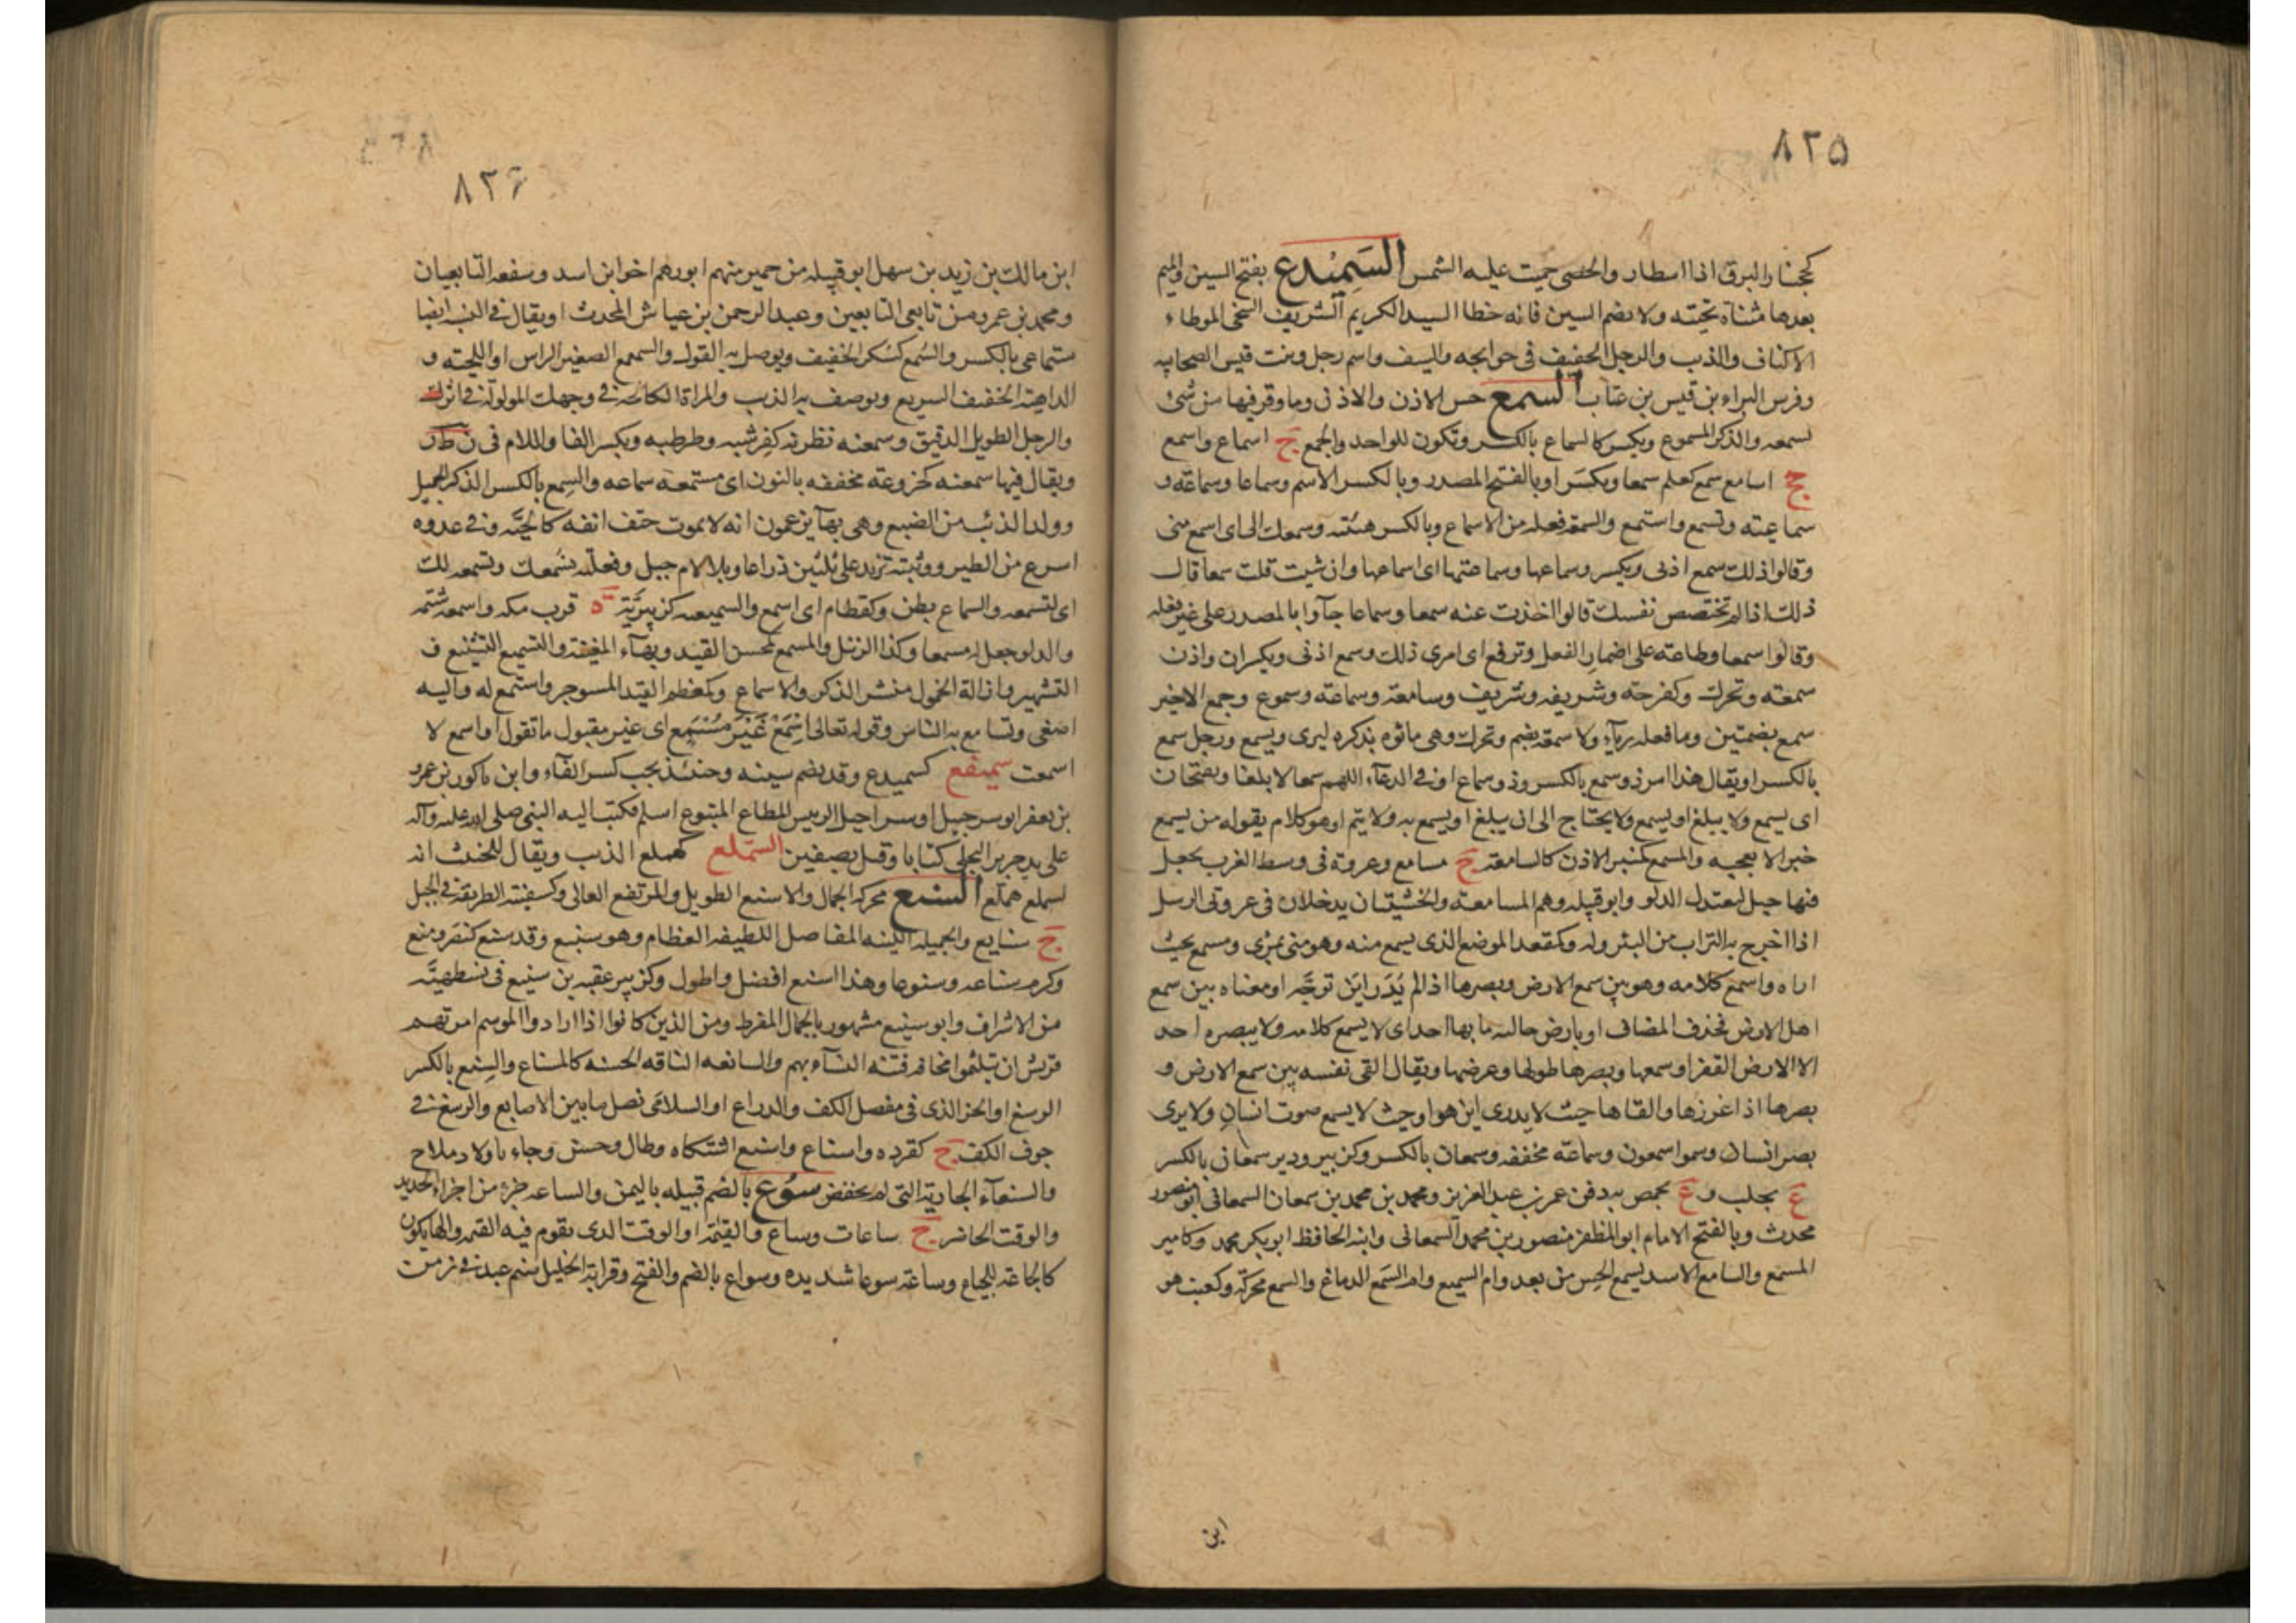 ٨٢٥
كجنار البرق اذا اسطار والحصى حميت عليه الشمس السَمَيْدع بفتح السين والميم
بعدها مثناة تحتيه ولا يضم السين فانه خطا السيد الكريم الشريف السخى الموطاء
الاكناف والذيب والرجل الخفيف فى حوايجه والسيف واسم رجل وبنت قيس الصحابيه
وفرس البراء بن قيس بن عتاب السمع حس الاذن والاذن وما وقر فيها من شئ
تسمعه والذكر المسموع ويكسر كالسماع بالكسر وتكون للواحد والجمع ج اسماع واسمع
جج اسامع سمع كعلم سمعا ويكسر او بالفتح المصدر وبالكسر الاسم وسماعا وسماعة و
سماعيته وتسمع واستمع والسمعة فعله من الاسماع وبالكسر هيئته وسمعك الى اى اسمع منى
وقالوا ذلك سمع اذنى ويكسر وسماعها وسماعتها اى اسماعها وان شيت قلت سمعا قال
ذلك اذا لم تختصص نفسك قالوا اخذت عنه سمعا وسماعا جآوا بالمصدر على غير فعله
وقالوا سمعا وطاعته على اضمار الفعل وترفع اى امرى ذلك وسمع اذنى ويكسران واذن
سمعته وتحرك وكفرحته وشريفه وشريف وسامعة وسماعته وسموع وجمع الاخير
سمع بضمتين وما فعله ريآء ولا سمعة بضم وتحرك وهى ما نوه بذكره ليرى ويسمع ورجل سمع
بالكسر او يقال هذا امر ذو سمع بالكسر وذو سماع او فى الدعآء اللهم سمعا لا بلغا ويفتحان
اى يسمع ولا يبلغ او يسمع ولا يحتاج الى ان يبلغ او يسمع به ولا يتم او هو كلام يقوله من يسمع
خبرا لا يعجبه والمسمع كمنبر الاذن كالسامعة ج مسامع وعروة فى وسط الغرب يجعل
فيها حبل ليعتدل الدلو وابو قبيله وهم المسامعة والخشبتان يدخلان فى عروتى الزبيل
اذا اخرج به التراب من البئر وله وكمقعد الموضع الذى يسمع منه وهو منى بمرى ومسمع بحيث
اراه واسمع كلامه وهو بين سمع الارض وبصرها اذا لم يُدَر اين توجّه او معناه بين سمع
اهل الارض فحذف المضاف او بارض خاليه ما بها احد اى لا يسمع كلامه ولا يبصره احد
الا الارض القفر او سمعها وبصرها طولها وعرضها ويقال القى نفسه بين سمع الارض و
بصرها اذا غررها والقاها حيث لا يدرى اين هو او حيث لا يسمع صوت انسان ولا يرى
بصر انسان وسموا سمعون وسماعة مخففه وسمعان بالكسر وكزبير ودير سمعان بالكسر
ع بحلب و ع بحمص به دفن عمر بن عبد العزيز ومحمد بن محمد بن سمعان السمعانى ابو منصور
محدث وبالفتح الامام ابو المظفر منصور بن محمد السمعانى وابنه الحافظ ابو بكر محمد وكامير
المسمع والسامع الاسد يسمع الحس من بعد وام السميع وام السَمع الدماغ والسمع محركة وكعبت هو
ابن
٨٢۶
ابن مالك بن زيد بن سهل ابو قبيله من حمير منهم ابورهم اخو ابن اسد وسفعه التابعيان
ومحمد بن عمرو من تابعى التابعين وعبد الرحمن بن عياش المحدث او يقال فى النسب ايضا
سماعى بالكسر والسُمع كسُكر الخفيف ويوصل به القول والسمع الصغير الراس او اللحيته و
الداهية الخفيف السريع ويوصف به الذيب والمراة الكالحه فى وجهك المولولة فى اثرك
والرجل الطويل الدقيق وسمعنه نظرنه كقِرشبه وطرطبه ويكسر الفا واللام فى ن ظ ر
ويقال فيها سمعنه كخروعة مخففه بالنون اى مستمعة سماعه والسِمع بالكسر الذكر الجميل
وولد الذئب من الضبع وهى بهآ يزعمون انه لا يموت حتف انفه كالحيَّه وفى عدوه
اسرع من الطير ووثبته تزيد على ثلثين ذراعا وبلا لام جبل وفعلته تسَمعك وتسمعه لك
اى لتسمعه والسماع بطن وكقطام اى اسمع والسميعه كزبيرّية ة قرب مكه واسمعه شتمه
والدلو جعل له مسمعا وكذا الزبيل والمسمع كمحسن القيد وبهآء المغنية والتسميع التشنيع و
التشهير وازالة الخمول بنشر الذكر والاسماع وكمعظم المقيد المسوجر واستمع له واليه
اصغى وتسامع به الناس وقوله تعالى اسْمَعْ غَيْرَ مُسْمَعٍ اى غير مقبول ما تقول او اسمع لا
اسمعت سميفع كسميدع وقد يضم سينه وحنئذ يجب كسر الفآء وابن باكور بن عمرو
بن يعفر ابو سرحبيل او سراحيل الرييس المطاع المتبوع اسلم فكتب اليه النبى صلى الله عليه وآله
على يد جرير البجلى كتابا وقتل بصفين السّملع كهملع الذيب ويقال للخبث انه
لسملع هملع السنع محركة الجمال والاسنع الطويل والمرتفع العالى وكسفينة الطريقة فى الجبل
ج سنايع والجميله اللينه المفاصل اللطيفه العظام وهو سنيع وقد سنع كنصر ومنع
وكرم سناعه وسنوعا وهذا اسنع افضل واطول وكزبير عقبه بن سنيع فى نسب طهيّه
من الاشراف وابو سنيع مشهور بالجمال المفرط ومن الذين كانوا اذا ارادوا الموسم امرتهم
قريش ان يتلثموا مخافة فتنه النسآء بهم والسانعه الناقه الحسنه كالمسناع والسِنع بالكسر
الرسغ او الحز الذى فى مفصل الكف والذراع او السلامى نصل ما بين الاصابع والرسغ فى
جوف الكف ج كقرده واسناع واسنع اشتكاه وطال وحسن وجاء باولاد ملاح
والسنعآء الجارية التى لم تخفض سوع بالضم قبيله باليمن والساعه جزء من اجزاء الجديد
والوقت الحاضر ج ساعات وساع والقيمَة او الوقت الذى تقوم فيه القيمه والهايكون
كالجاعة للجياع وساعة سوعا شديده وسواع بالضم والفتح وقراية الخليل صنم عبد فى زمن